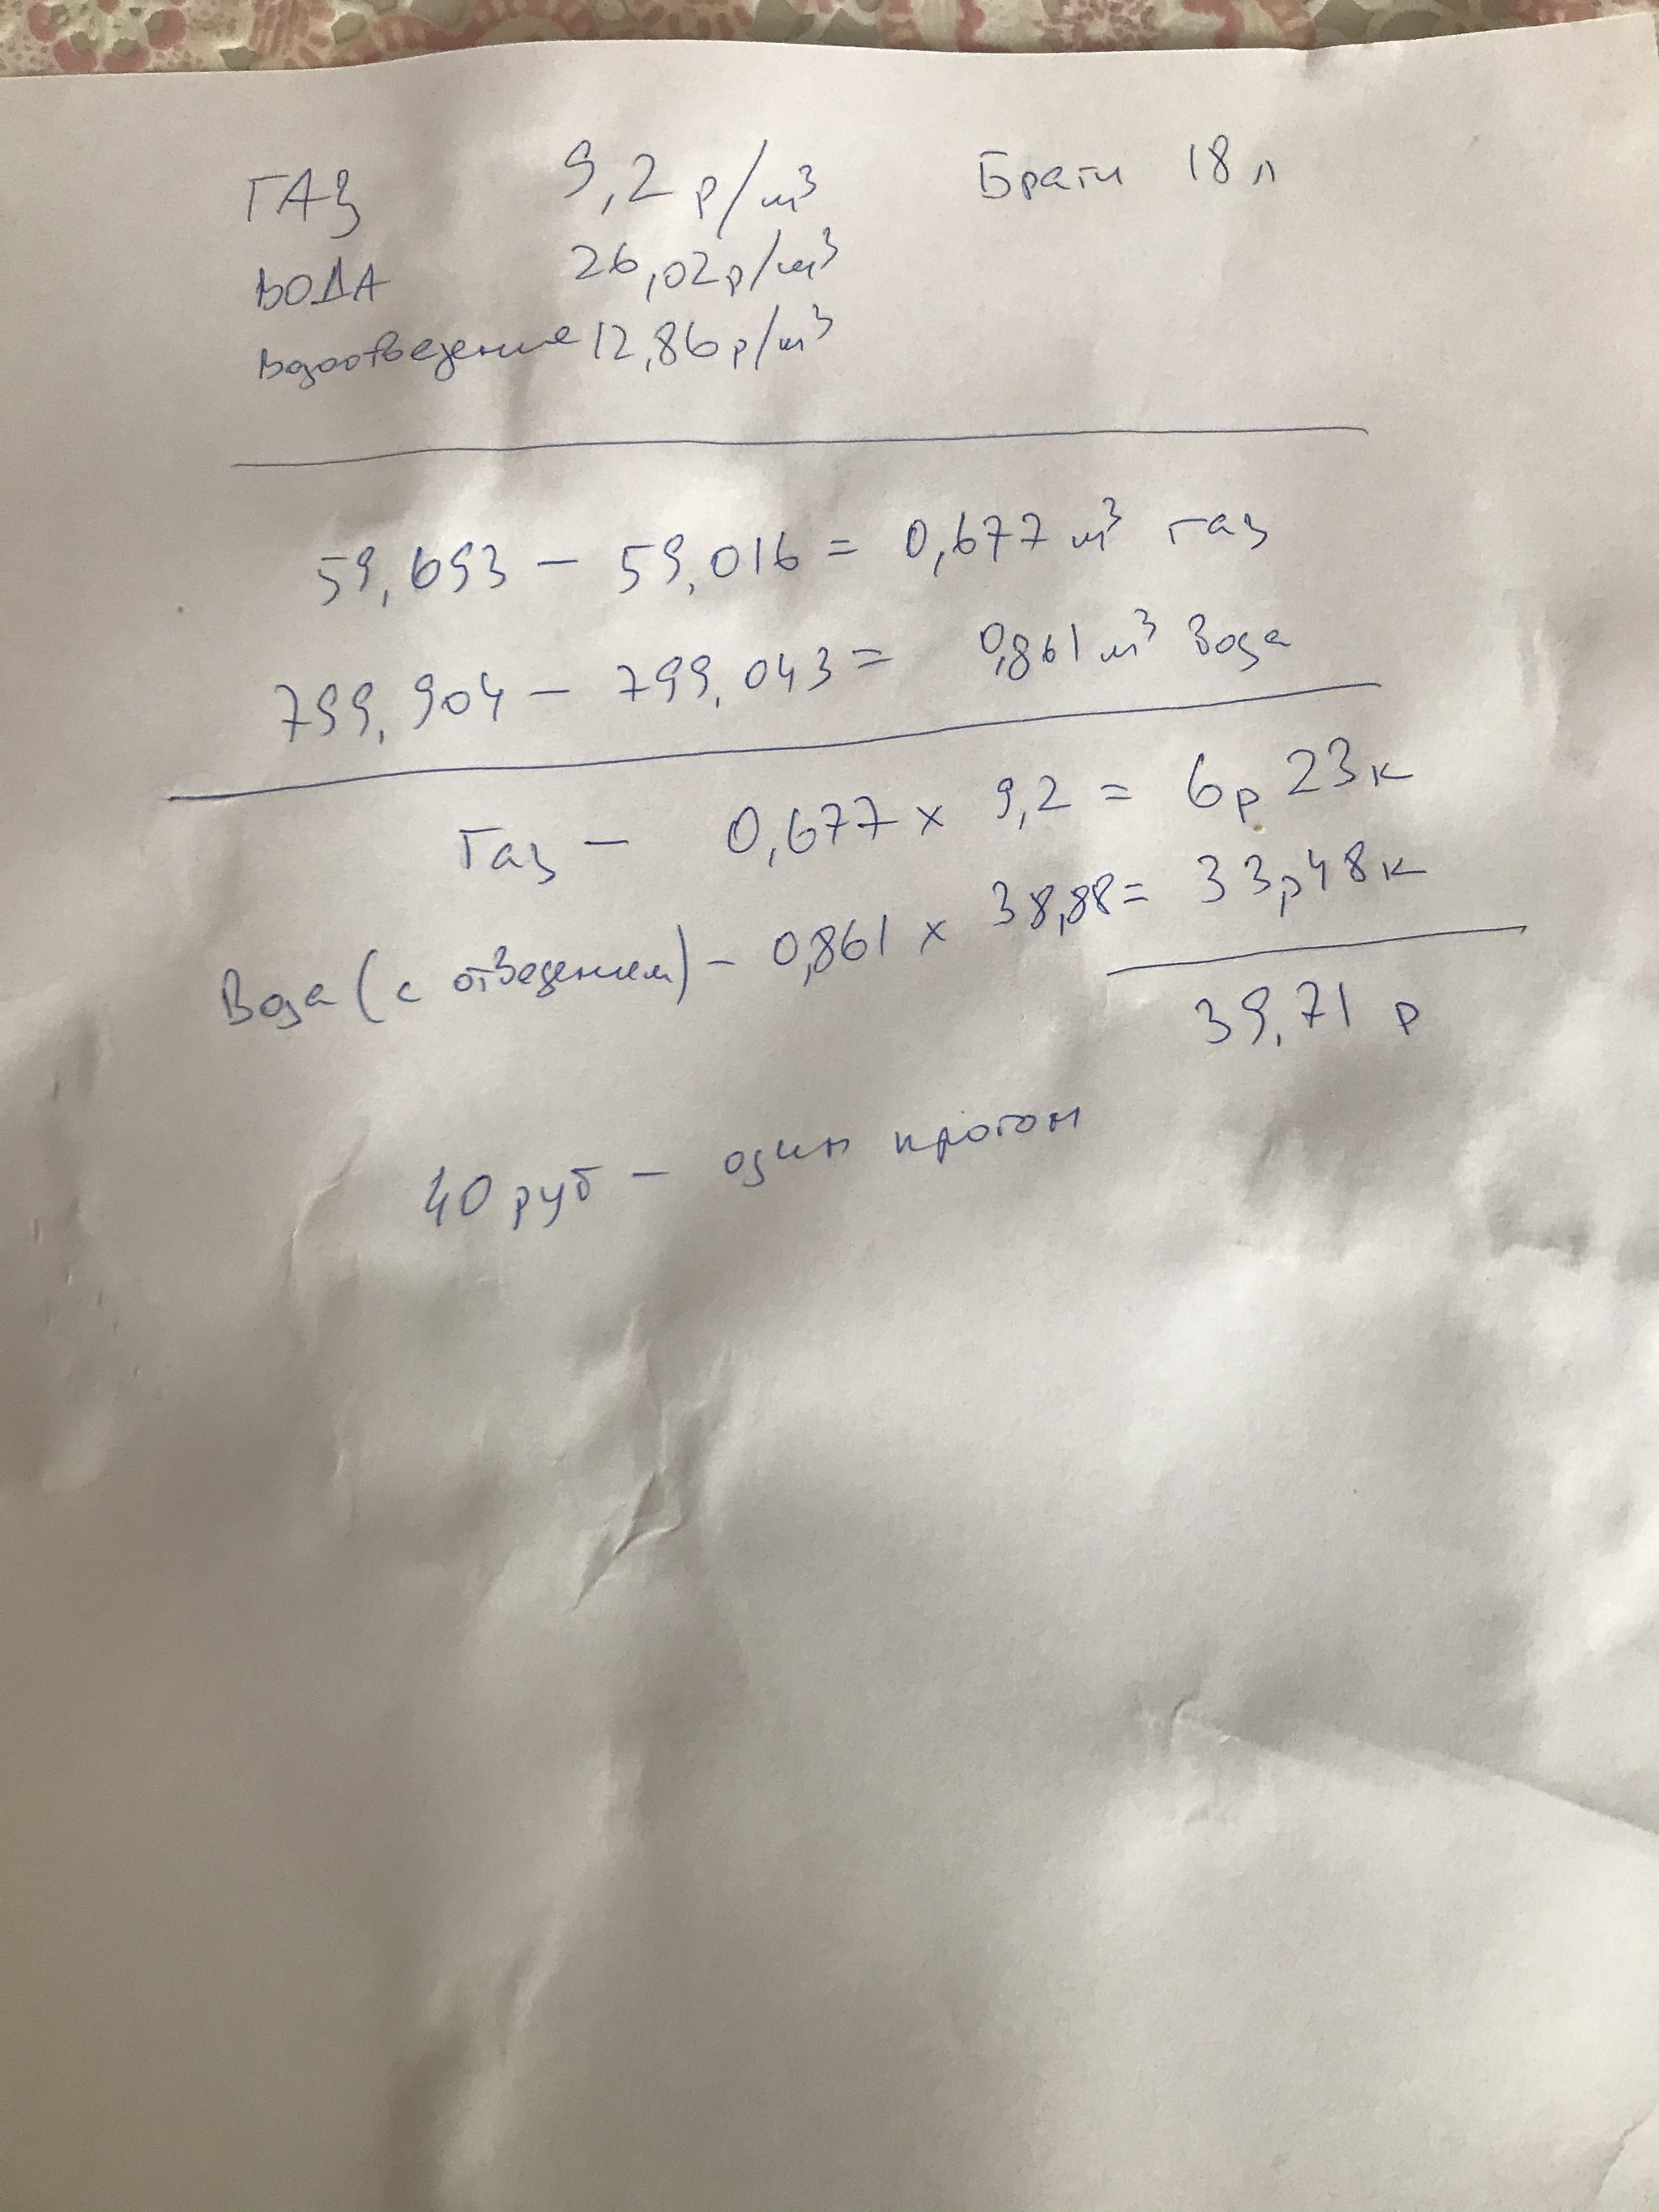 ГАЗ 9,2 р/м³ Браги 18 л
ВОДА 26,02 р/м³
Водоотведение 12,86 р/м³
59,693 - 59,016 = 0,677 м³ газ
799,904 - 799,043 = 0,861 м³ Вода
Газ - 0,677 x 9,2 = 6р 23к
Вода (с отведением) - 0,861 x 38,88 = 33р48к
39,71 р
40 руб - один прогон